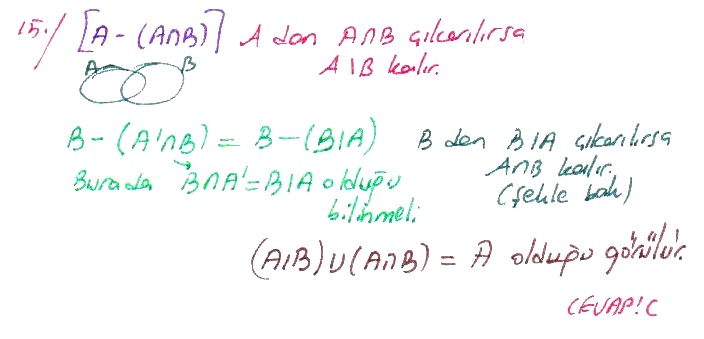 15-/ [A - (A∩B)] A dan A∩B çıkarılırsa
A\B kalır.
A B
B - (A'∩B) = B - (B\A) B den B\A çıkarılırsa
A∩B kalır.
Burada B∩A' = B\A olduğu (şekle bak)
bilinmeli
(A\B) ∪ (A∩B) = A olduğu görülür.
CEVAP: C